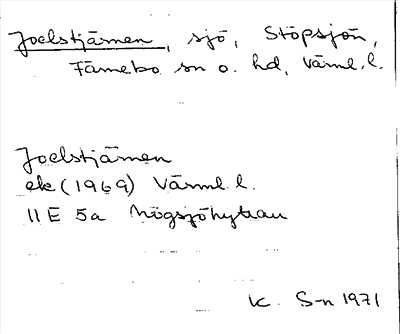 Joelstjärnen, sjö, Stöpsjön,
Färnebo sn o. hd, Värml. l.
Joelstjärnen
ek (1969) Värml l.
11 E 5a Högsjöhyttan
K. S-n 1971